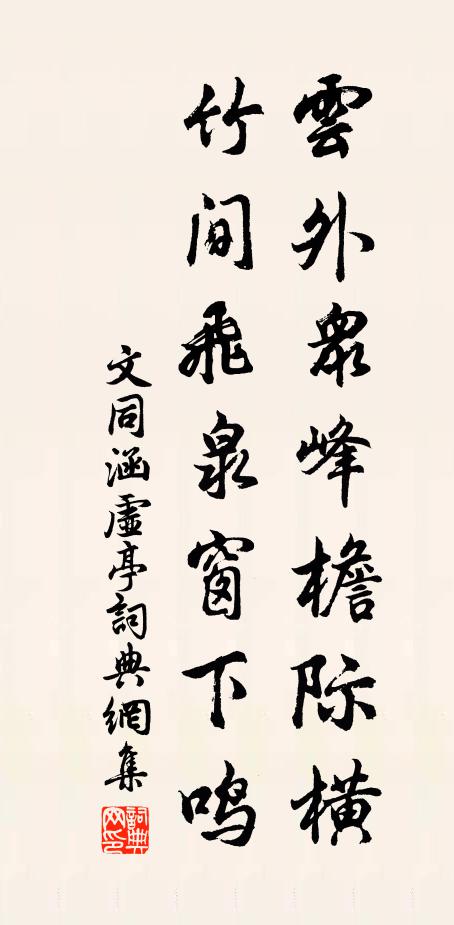 雲外眾峰檐际橫
竹间飛泉窗下鸣
文同涵虛亭詞典網集
詞典网印